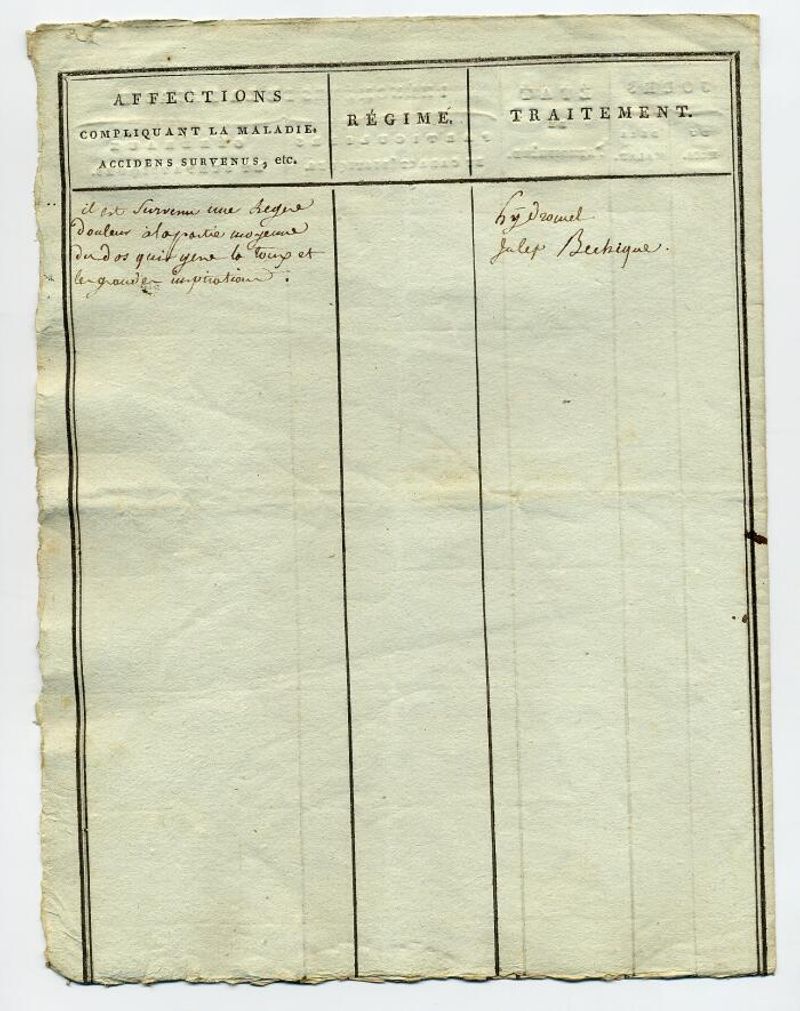 AFFECTIONS
COMPLIQUANT LA MALADIE.
ACCIDENS SURVENUS, etc.
RÉGIME.
TRAITEMENT.
il est Survenu une legere
Douleur à la partie moyenne
Du Dos qui gene la toux et
les grandes inspirations.
hÿdromel
Julep Bechique.